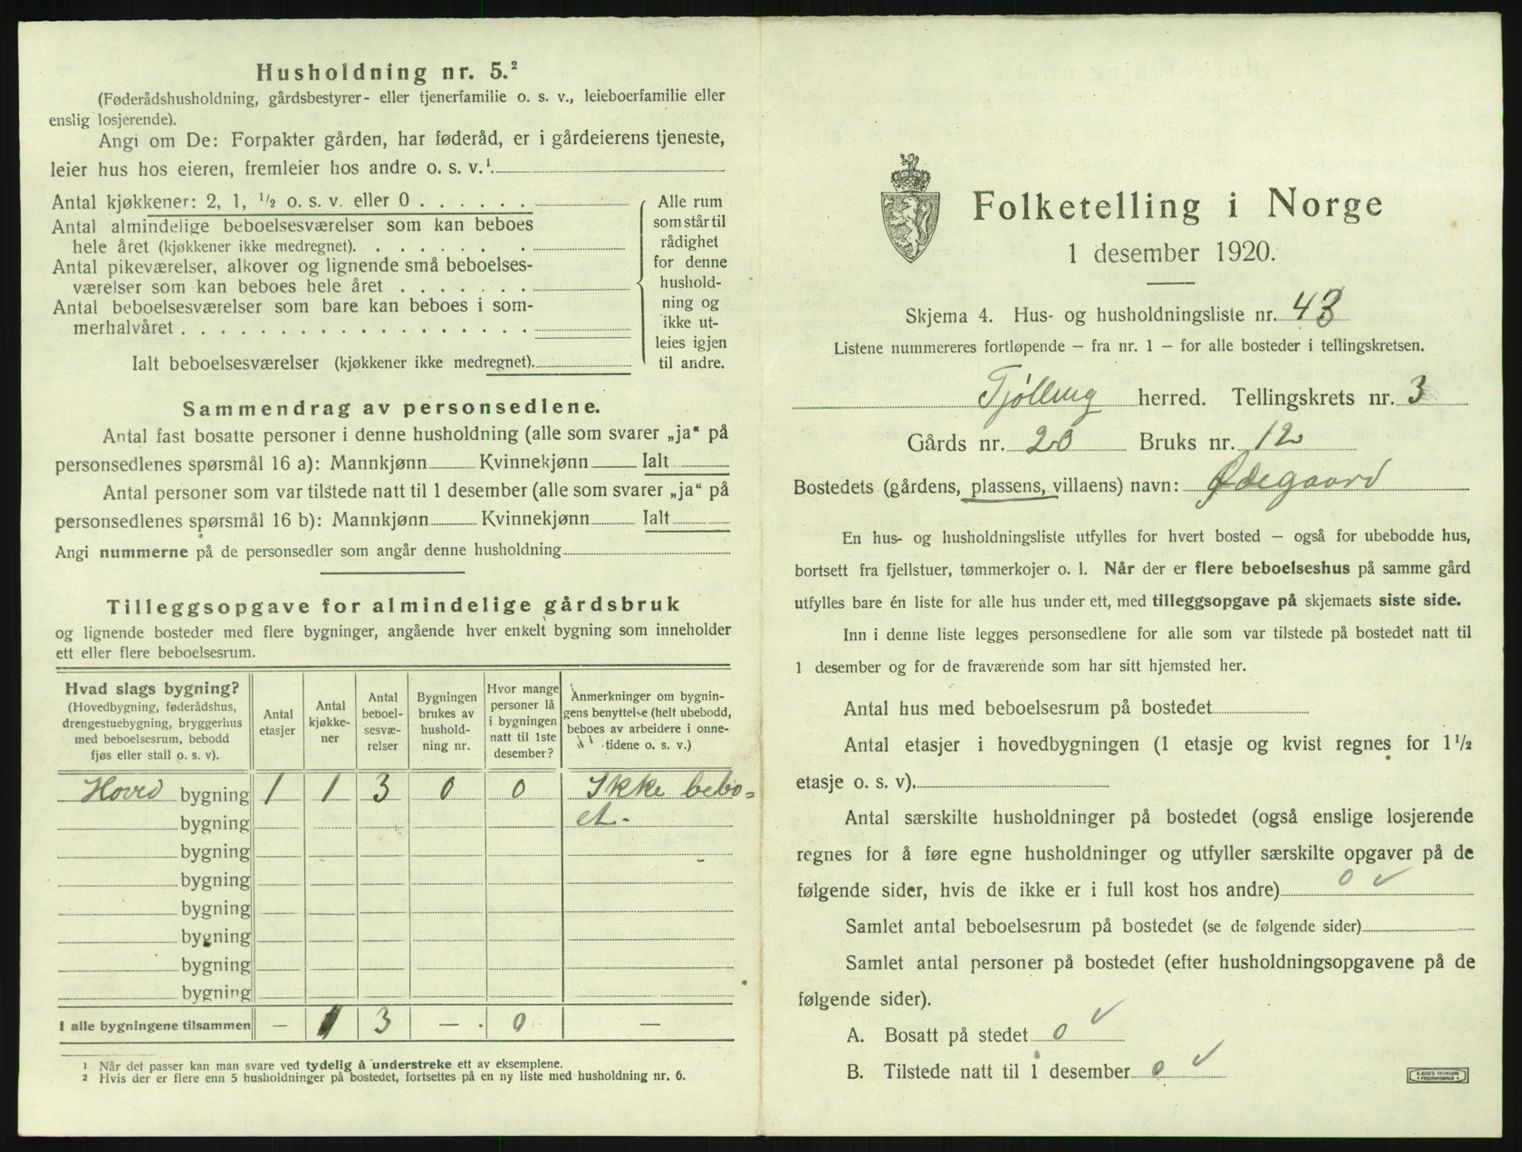 Husholdning nr. 5.²
(Føderådshusholdning, gårdsbestyrer- eller tjenerfamilie o. s. v., leieboerfamilie eller
enslig losjerende).
Angi om De: Forpakter gården, har føderåd, er i gårdeierens tjeneste,
leier hus hos eieren, fremleier hos andre o. s. v.¹
Antal kjøkkener: 2, 1, ¹/₂ o. s. v. eller 0
Antal almindelige beboelsesværelser som kan beboes
hele året (kjøkkener ikke medregnet).
Antal pikeværelser, alkover og lignende små beboelses-
værelser som kan beboes hele året
Antal beboelsesværelser som bare kan beboes i som-
merhalvåret
Ialt beboelsesværelser (kjøkkener ikke medregnet).
Alle rum
som står til
rådighet
for denne
hushold-
ning og
ikke ut-
leies igjen
til andre.
Sammendrag av personsedlene.
Antal fast bosatte personer i denne husholdning (alle som svarer „ja“ på
personsedlenes spørsmål 16 a): Mannkjønn Kvinnekjønn Ialt
Antal personer som var tilstede natt til 1 desember (alle som svarer „ja“ på
personsedlenes spørsmål 16 b): Mannkjønn Kvinnekjønn Ialt
Angi nummerne på de personsedler som angår denne husholdning
Tilleggsopgave for almindelige gårdsbruk
og lignende bosteder med flere bygninger, angående hver enkelt bygning som inneholder
ett eller flere beboelsesrum.
Hvad slags bygning?
(Hovedbygning, føderådshus,
drengestuebygning, bryggerhus
med beboelsesrum, bebodd
fjøs eller stall o. s. v).
Antal
etasjer
Antal
kjøkke-
ner
Antal
beboel-
sesvæ-
relser
Bygningen
brukes av
hushold-
ning nr.
Hvor mange
personer lå
i bygningen
natt til 1ste
desember?
Anmerkninger om bygnin-
gens benyttelse (helt ubebodd,
beboes av arbeidere i onne-
tidene o. s. v.)
Hoved bygning 1 1 3 0 0 Ikke bebo=
bygning et.
bygning
bygning
bygning
bygning
bygning
bygning
I alle bygningene tilsammen — 1 3 — 0 —
¹ Når det passer kan man svare ved tydelig å understreke ett av eksemplene.
² Hvis der er flere enn 5 husholdninger på bostedet, fortsettes på en ny liste med husholdning nr. 6.
Folketelling i Norge
1 desember 1920.
Skjema 4. Hus- og husholdningsliste nr. 43
Listene nummereres fortløpende — fra nr. 1 — for alle bosteder i tellingskretsen.
Tjølling herred. Tellingskrets nr. 3
Gårds nr. 20 Bruks nr. 12
Bostedets (gårdens, plassens, villaens) navn: Ødegaard
En hus- og husholdningsliste utfylles for hvert bosted — også for ubebodde hus,
bortsett fra fjellstuer, tømmerkojer o. l. Når der er flere beboelseshus på samme gård
utfylles bare én liste for alle hus under ett, med tilleggsopgave på skjemaets siste side.
Inn i denne liste legges personsedlene for alle som var tilstede på bostedet natt til
1 desember og for de fraværende som har sitt hjemsted her.
Antal hus med beboelsesrum på bostedet
Antal etasjer i hovedbygningen (1 etasje og kvist regnes for 1¹/₂
etasje o. s. v).
Antal særskilte husholdninger på bostedet (også enslige losjerende
regnes for å føre egne husholdninger og utfyller særskilte opgaver på de
følgende sider, hvis de ikke er i full kost hos andre) 0 ✓
Samlet antal beboelsesrum på bostedet (se de følgende sider)
Samlet antal personer på bostedet (efter husholdningsopgavene på de
følgende sider).
A. Bosatt på stedet 0 ✓
B. Tilstede natt til 1 desember 0 ✓